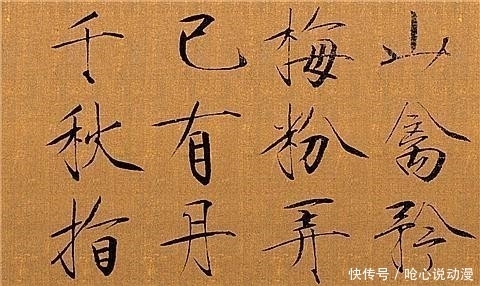 山禽矜
梅粉弄
已有丹
千秋指
快传号/呛心说动漫